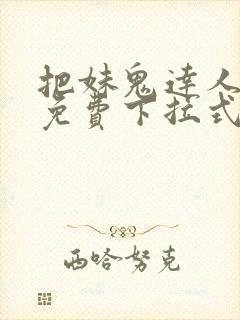 把妹鬼達人
免費下拉式
西哈努克